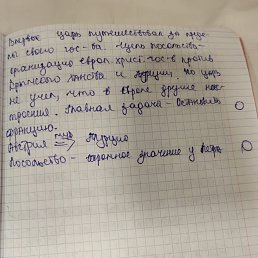 Впервые царь путешествовал за преде-
лы своего гос-ва. Цель посольств-
организация европ. христ. гос-в против
Крымского ханства и Турции. Но царь
не учел, что в Европе другие нас-
троения. Главная задача - остановить
Францию.
Австрия мир => Турцию
Посольство - огромное значение у Петра